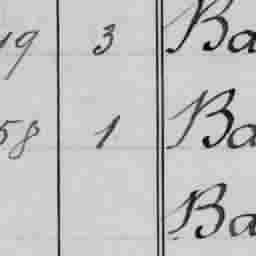 19 3 Ba
58 1 Ba
Ba